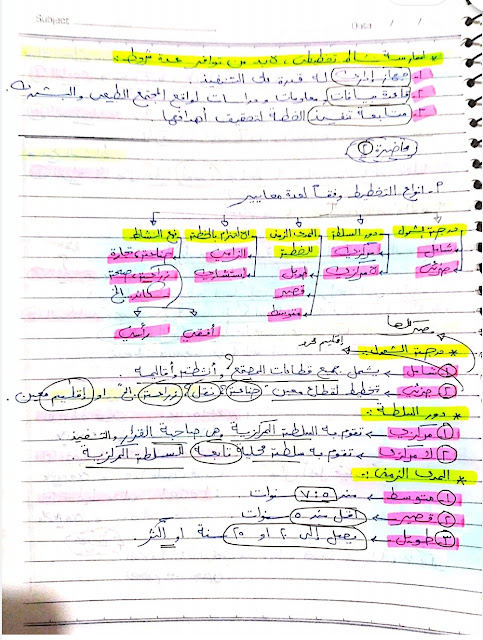 Subject
Date / /
* لممارسة نشاط تخطيطى لابد من توافر عدة شروط:
١- جهاز إدارى له قدرة على التنفيذ.
٢- قاعدة بيانات ومعلومات ودراسات لواقع المجتمع الطبيعى والبشرى
٣- متابعة تنفيذ الخطة لتحقيق أهدافها
محاضرة ٢
أنواع التخطيط وفقاً لعدة معايير
درجة الشمول دور السلطة المدى الزمنى الالتزام بالخطة نوع النشاط
شامل مركزى للخطة الزامى صناعة، تجارة
جزئى لا مركزى طويل استشارى زراعة، صحة
قصير الخ
متوسط أفقى رأسى
مصر كلها
إقليم
* درجة الشمول:
١ شامل يشمل جميع قطاعات المجتمع وأنشطته وأقاليمه.
٢ جزئى تخطيط لقطاع معين "صناعة، نقل، زراعة، الخ" او إقليم معين.
* دور السلطة:
١ مركزى تقوم به السلطة المركزية وهى صاحبة القرار والتنفيذ
٢ لا مركزى تقوم به سلطة محلية تابعة للسلطة المركزية.
* المدى الزمنى:
١ متوسط من ٥ : ٧ سنوات
٢ قصير أقل من ٥ سنوات
٣ طويل يصل إلى ٢٠ او ٢٥ سنة او أكثر.